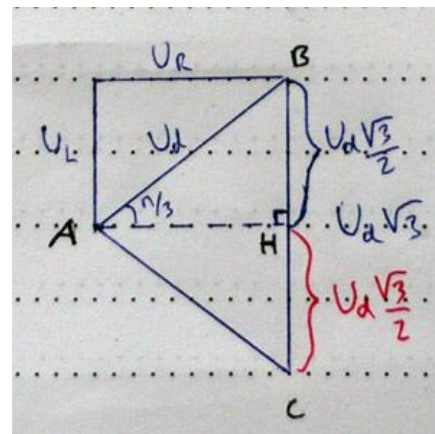 U_R B
U_L U_d U_d √3/2
π/3
A H U_d √3
U_d √3/2
C